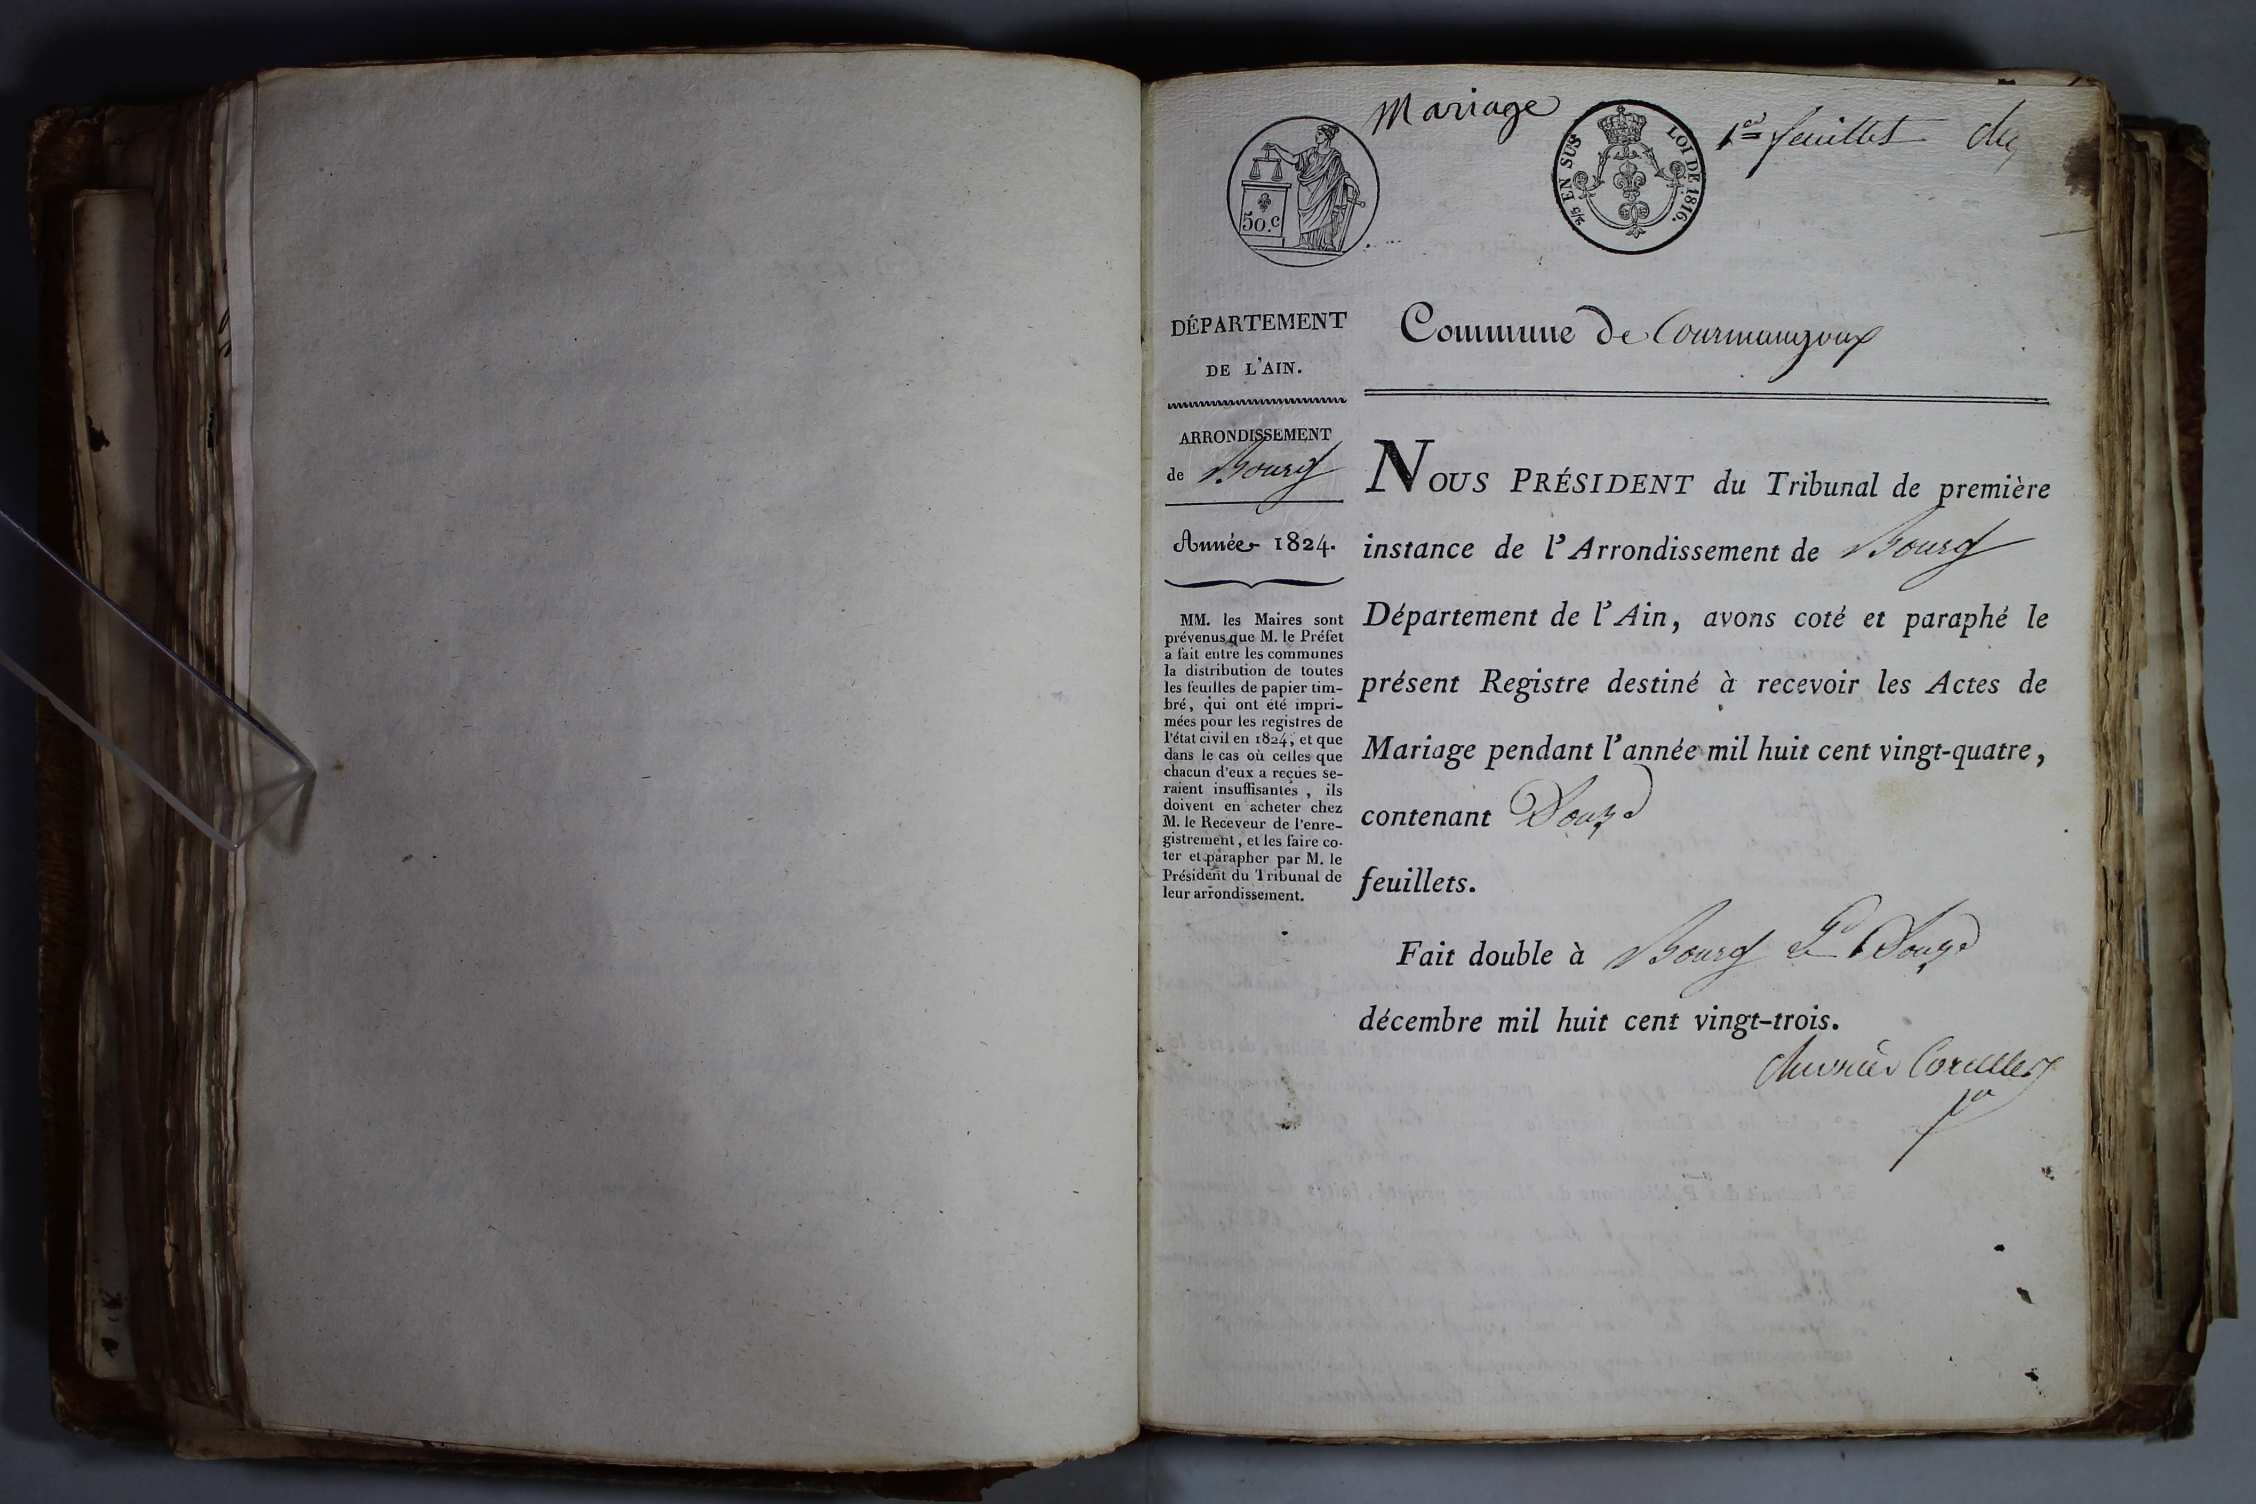 Mariage
1er feuillet
50.C
2/5 EN SUS
LOI DE 1816.
DÉPARTEMENT
DE L'AIN.
ARRONDISSEMENT
de Bourg
Année 1824.
MM. les Maires sont
prévenus que M. le Préfet
a fait entre les communes
la distribution de toutes
les feuilles de papier tim-
bré, qui ont été impri-
mées pour les registres de
l'état civil en 1824, et que
dans le cas où celles que
chacun d'eux a reçues se-
raient insuffisantes, ils
doivent en acheter chez
M. le Receveur de l'enre-
gistrement, et les faire co-
ter et parapher par M. le
Président du Tribunal de
leur arrondissement.
Commune de Courmangoux
NOUS PRÉSIDENT du Tribunal de première
instance de l'Arrondissement de Bourg
Département de l'Ain, avons coté et paraphé le
présent Registre destiné à recevoir les Actes de
Mariage pendant l'année mil huit cent vingt-quatre,
contenant Douze
feuillets.
Fait double à Bourg Le Douze
décembre mil huit cent vingt-trois.